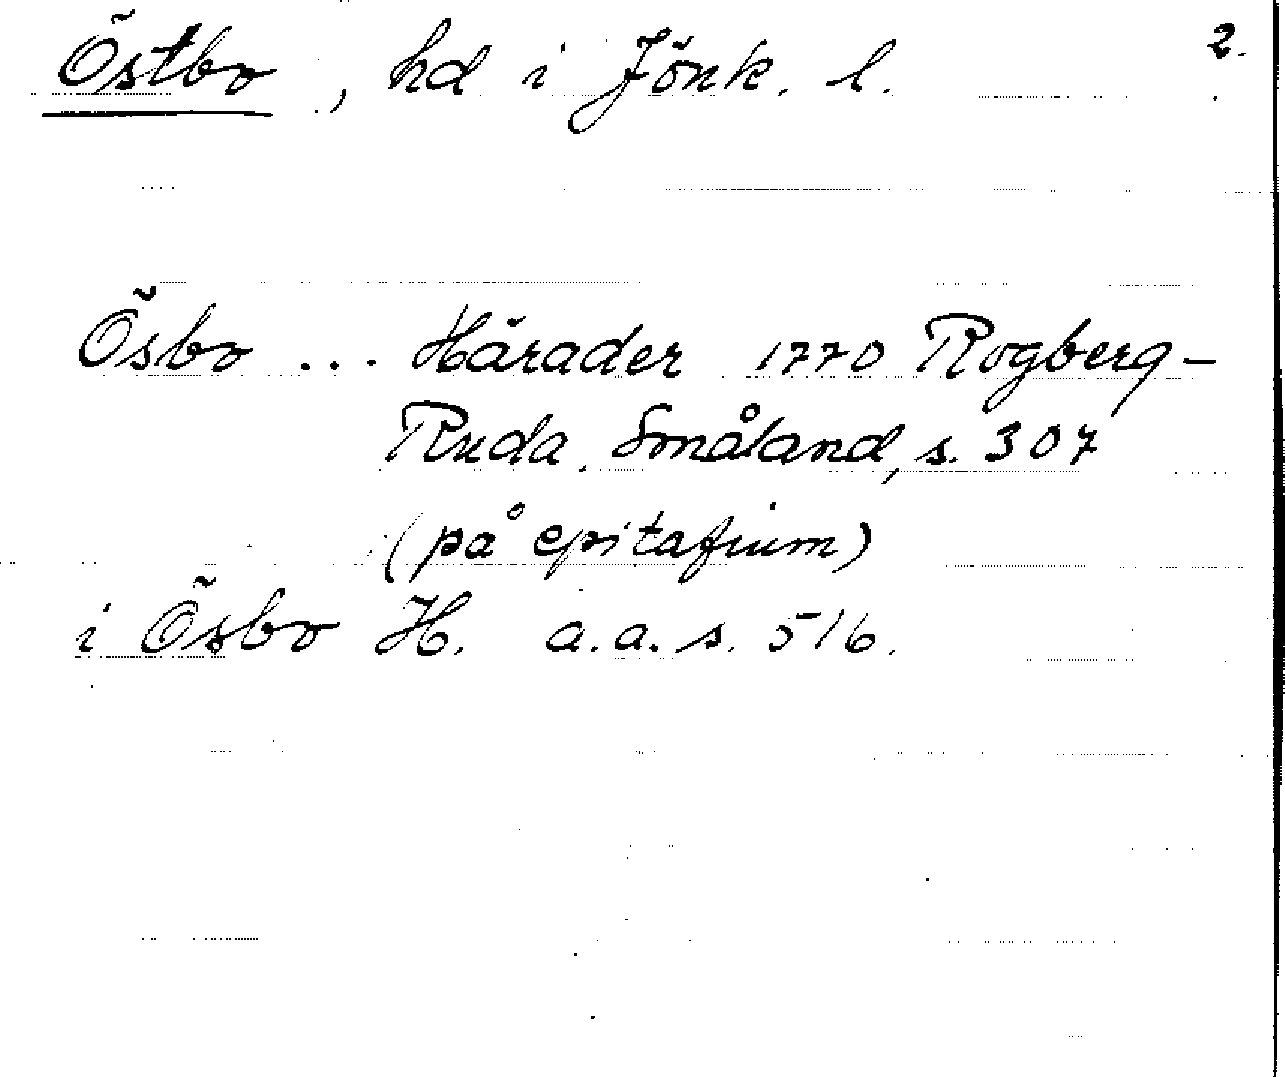 Östbo, hd i Jönk. l. 2.
Ösbo ... Härader 1770 Rogberg-
Ruda. Småland, s. 307
(på epitafium)
i Ösbo H. a.a. s. 516.